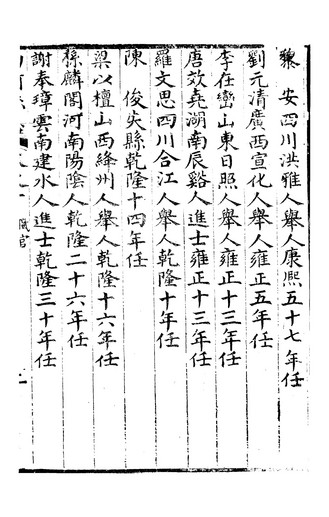 黎　安四川洪雅人舉人康熙五十七年任
劉元清廣西宣化人舉人雍正五年任
李在巒山東日照人舉人雍正十三年任
唐效堯湖南辰谿人進士雍正十三年任
羅文思四川合江人舉人乾隆十年任
陳　俊失縣乾隆十四年任
梁以檀山西絳州人舉人乾隆十六年任
孫麟閣河南陽陰人乾隆二十六年任
謝奉璋雲南建水人進士乾隆三十年任
職官